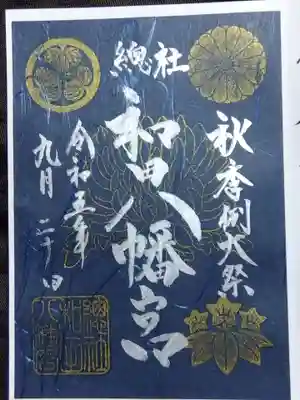 秋季例大祭
總社
和田八幡宮
令和五年
九月二十日